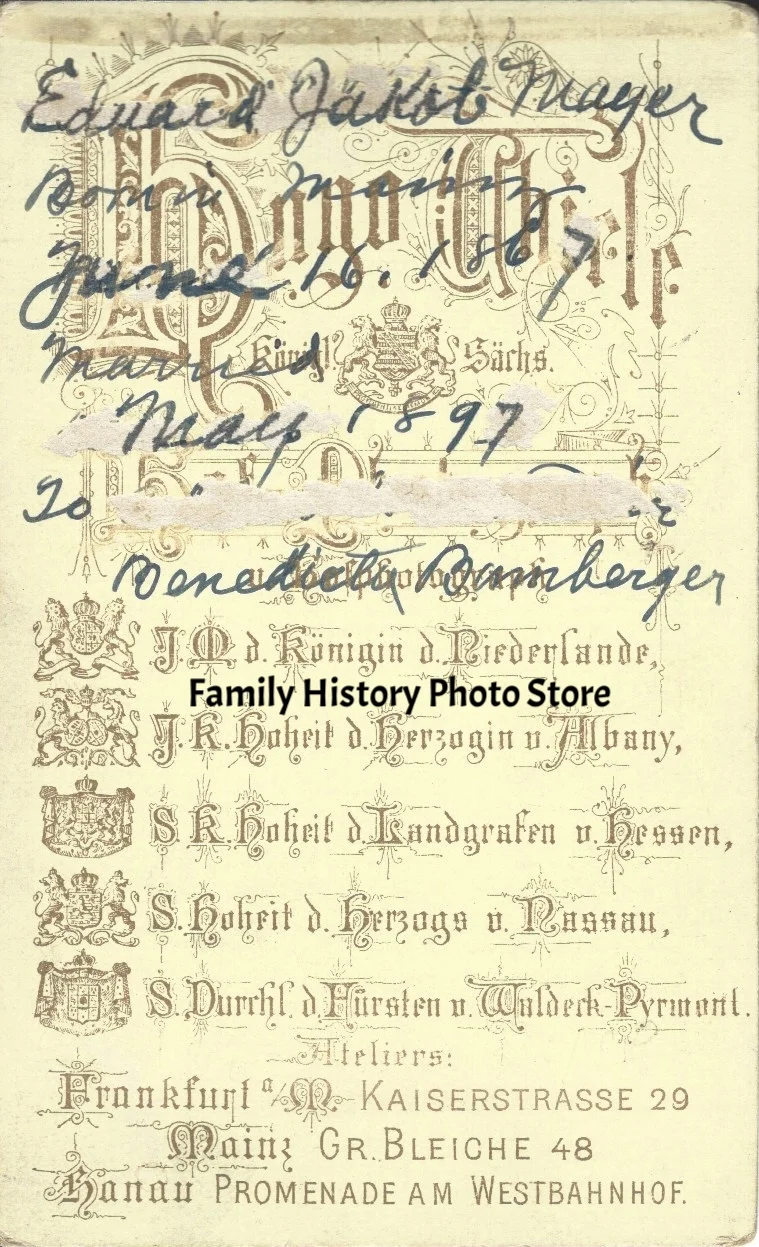 Eduard Jakob Mayer
Born Mainz
Hugo Thiele
June 16. 1867
Married
Königl. Sächs.
May 1897
To
Benedicta Bamberger
J. M. d. Königin d. Niederlande,
Family History Photo Store
J. K. Hoheit d. Herzogin v. Albany,
S. K. Hoheit d. Landgrafen v. Hessen,
S. Hoheit d. Herzogs v. Nassau,
S. Durchl. d. Fürsten v. Waldeck-Pyrmont.
Ateliers:
Frankfurt a/M. KAISERSTRASSE 29
Mainz GR. BLEICHE 48
Hanau PROMENADE AM WESTBAHNHOF.